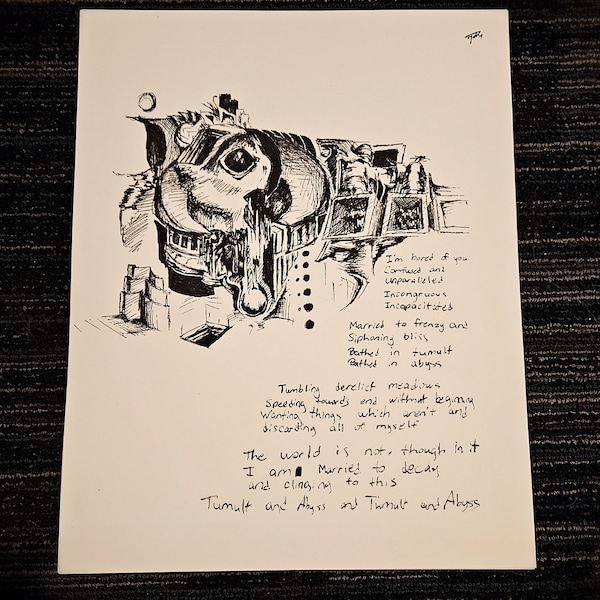 I'm bored of you
Confused and
unparalleled
Incongruous
Incapacitated
Married to frenzy and
Siphoning bliss
Bathed in tumult
Bathed in abyss
Tumbling derelict meadows
Speeding towards end without beginning
Wanting things which aren't and
discarding all of myself
The world is not, though in it
I am Married to decay
and clinging to this
Tumult and Abyss and Tumult and Abyss